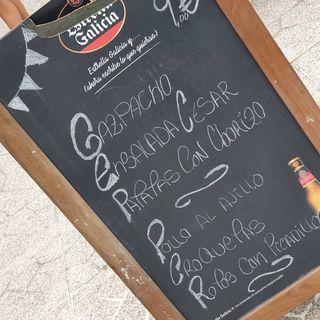 Estrella
Galicia
Estrella Galicia y....
(ahora escribe lo que quieras)
9€
GAZPACHO
ENSALADA CESAR
PATATAS CON CHORIZO
POLLO AL AJILLO
CROQUETAS
ROPAS CON PICADILLO